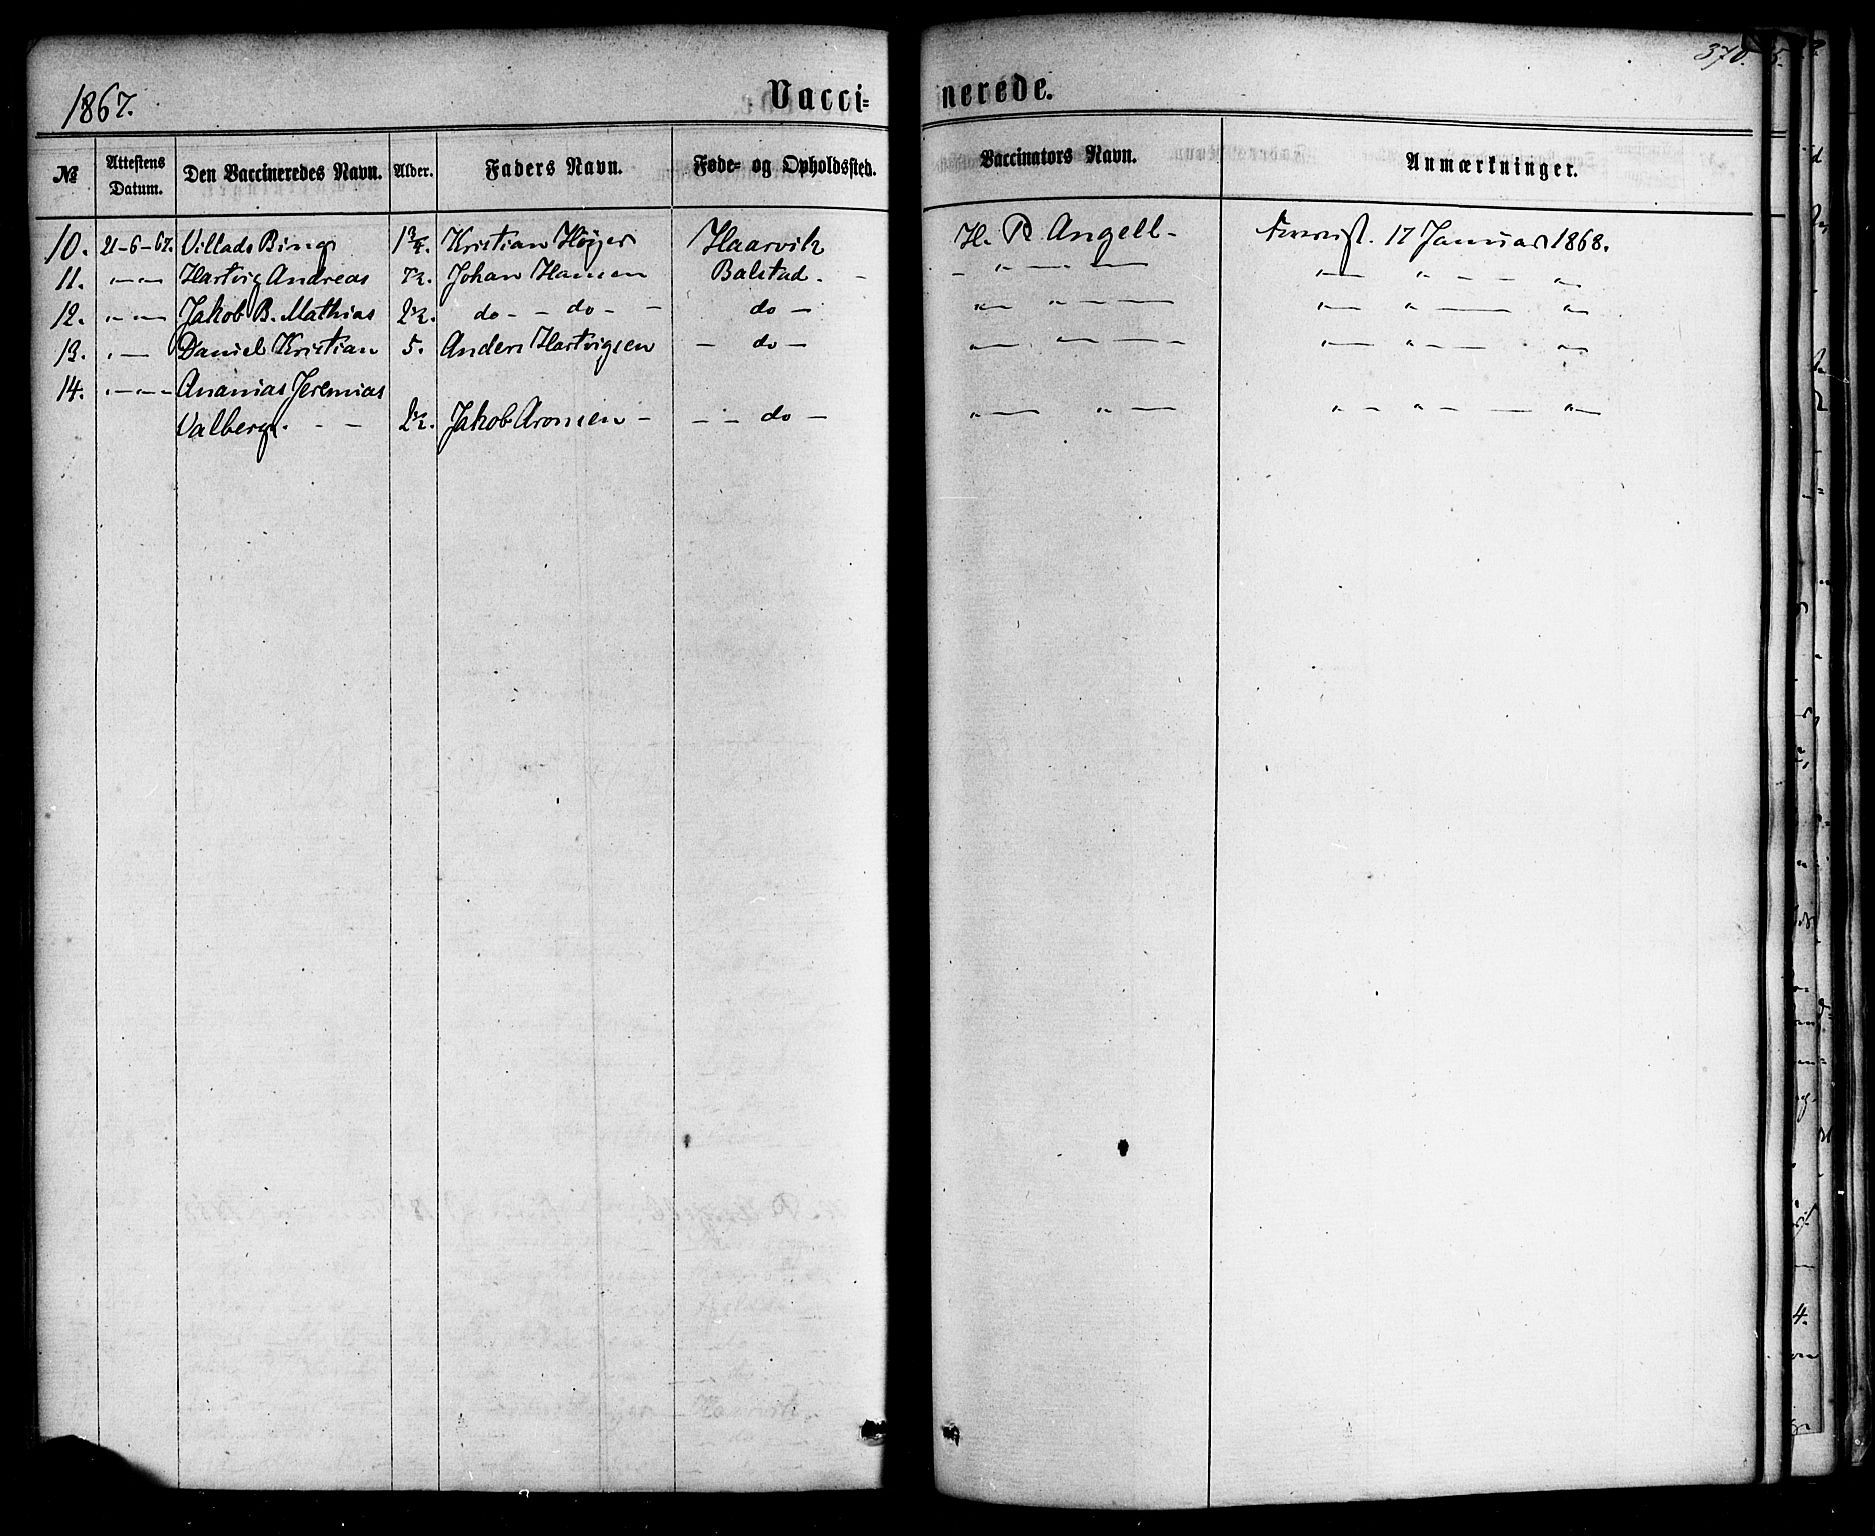 1867.
Vacci= nerede.
370.
№ Attestens Datum. Den Vaccineredes Navn. Alder. Faders Navn. Føde- og Opholdssted. Vaccinators Navn. Anmærkninger.
10. 21-6-67. Villads Bing 1¾. Kristian Højjer Haarvik H. R Angell - 17 Januar 1868.
11. -"-"- Hartvig Andreas Johan Hansen Balstad. - - " - " - " -
12. -"-"- Jakob B. Mathias 2½. do - - do - - do - " - " - " - " -
13. " - Daniel Kristian 5. Anders Hartvigsen - do - " - " - " - " -
14. -"-"- Ananias Jeremias
Valberg. - - 2½. Jakob Aronsen - - - do - " - " - " - " - " -